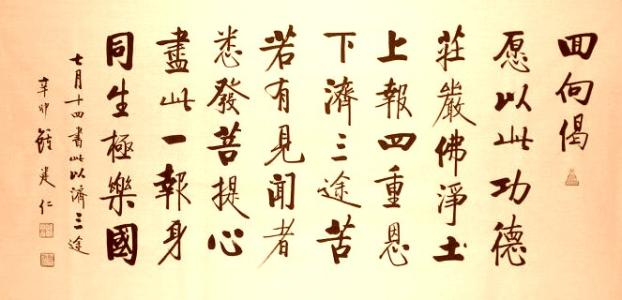 回向偈
愿以此功德
莊嚴佛淨土
上報四重恩
下濟三途苦
若有見聞者
悉發菩提心
盡此一報身
同生極樂國
七月十四書此以濟三途
辛卯 仁